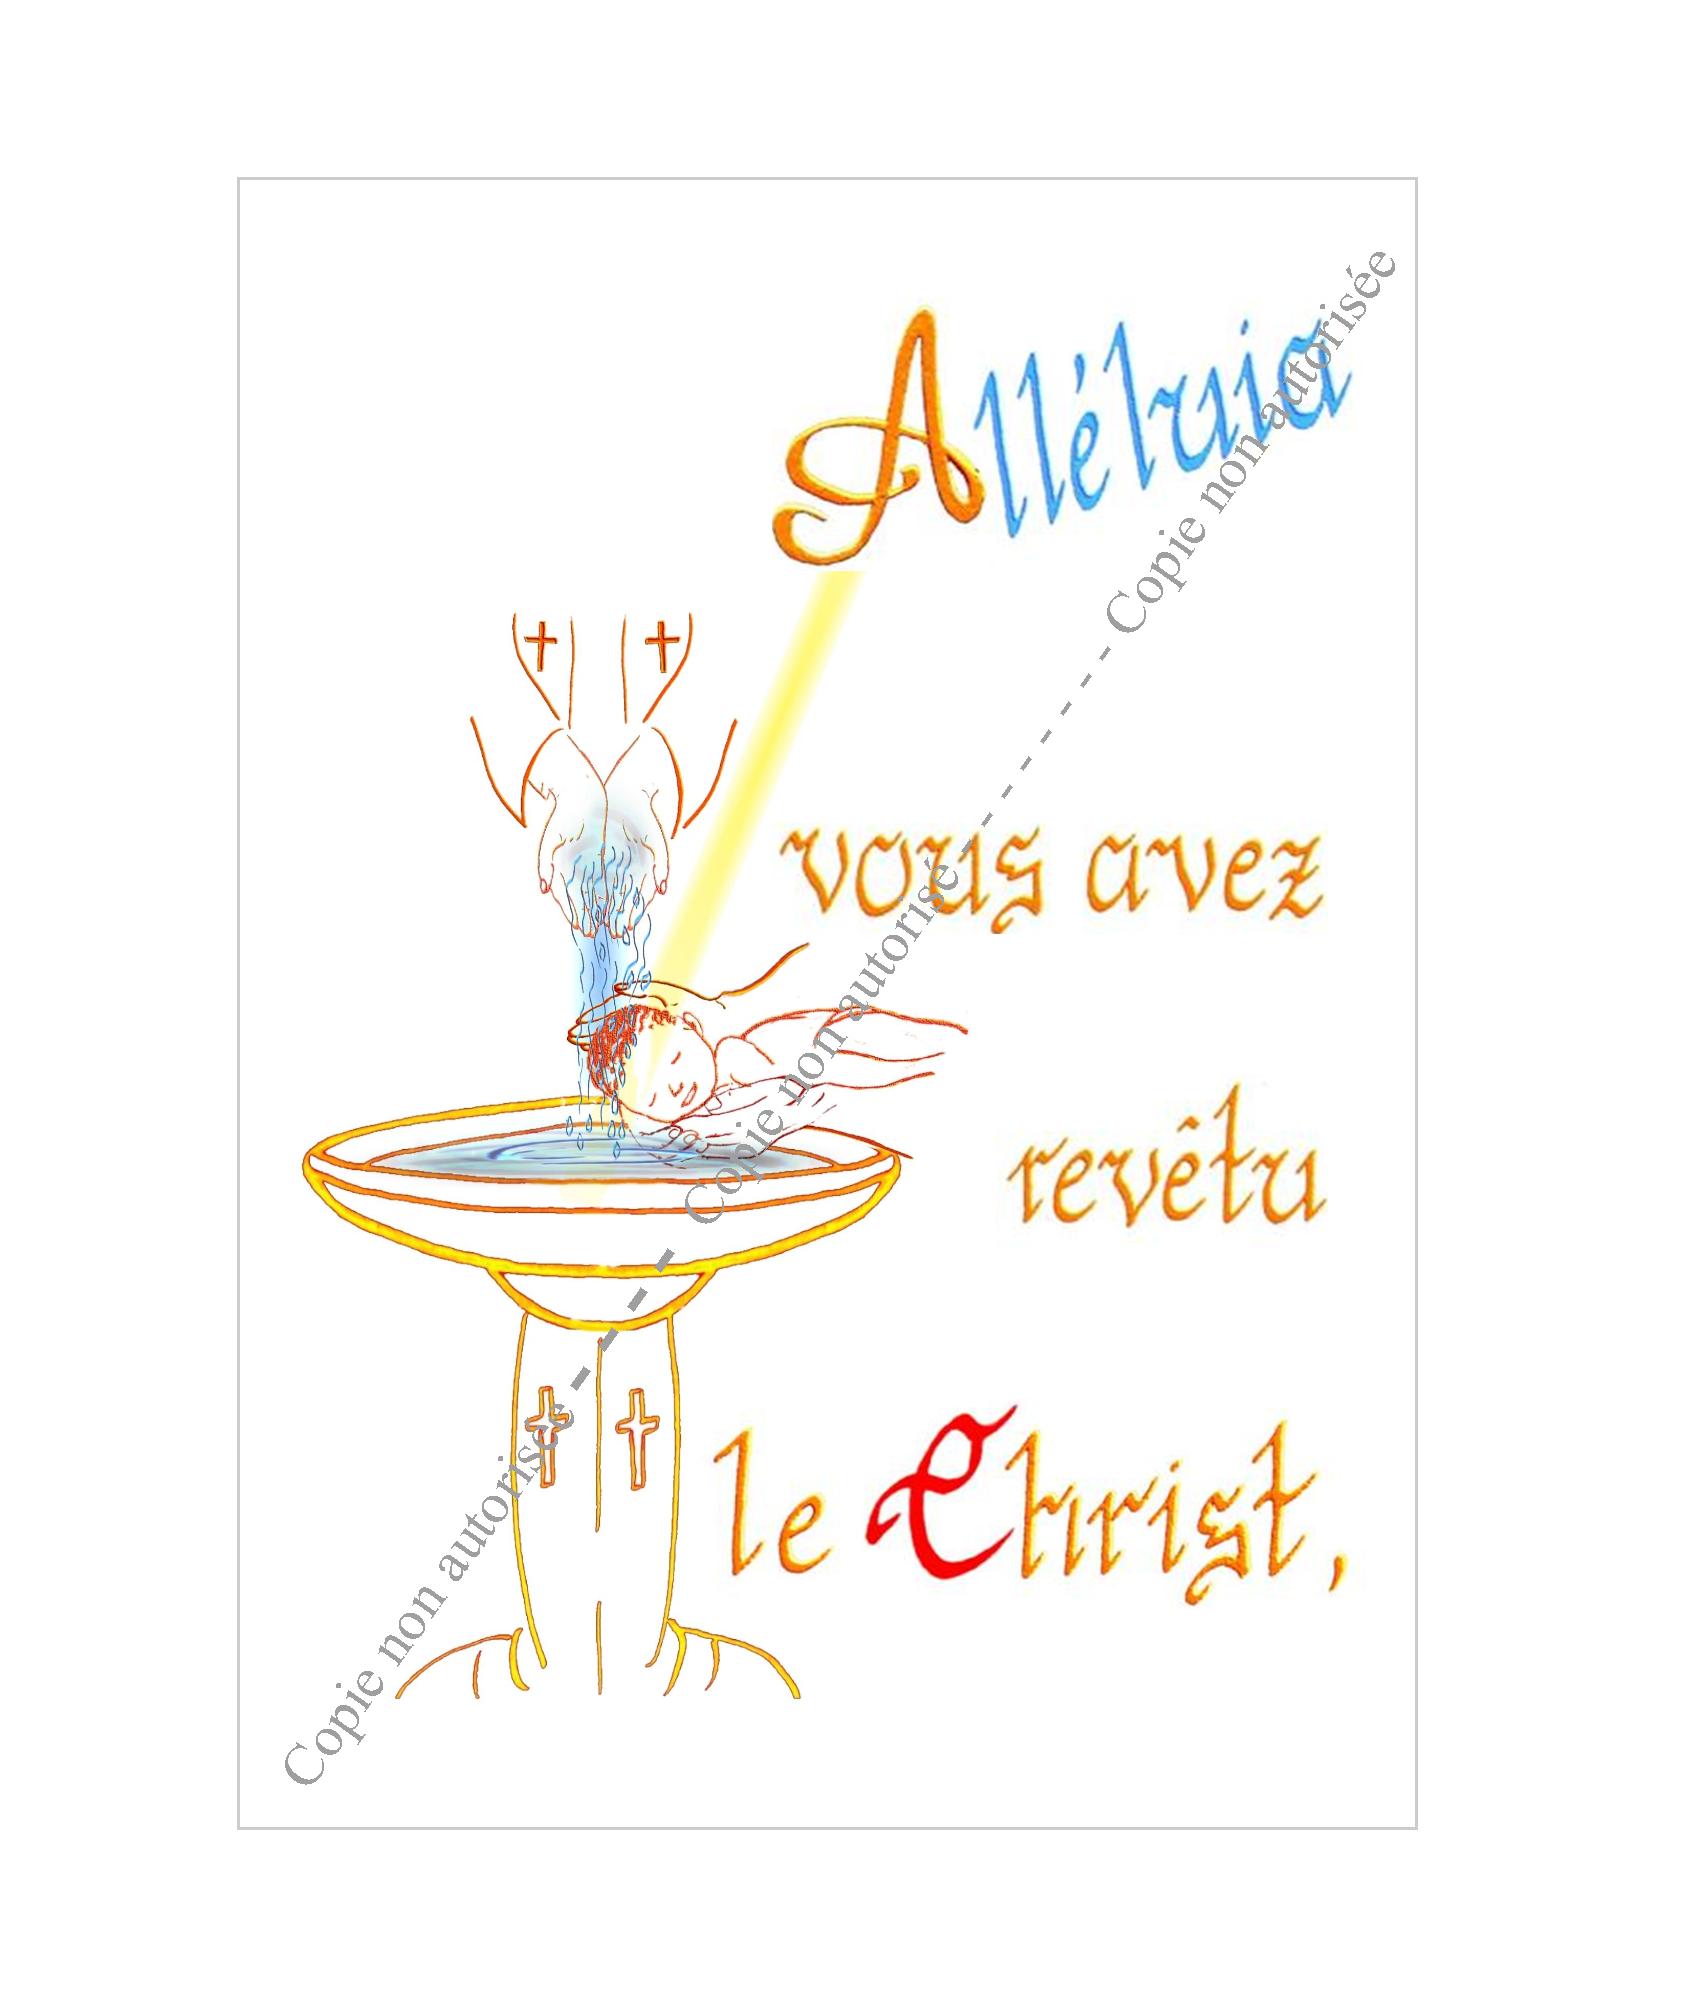 Alléluia
vous avez
revêtu
le Christ,
Copie non autorisée - - - Copie non autorisée - - - - - - - Copie non autorisée